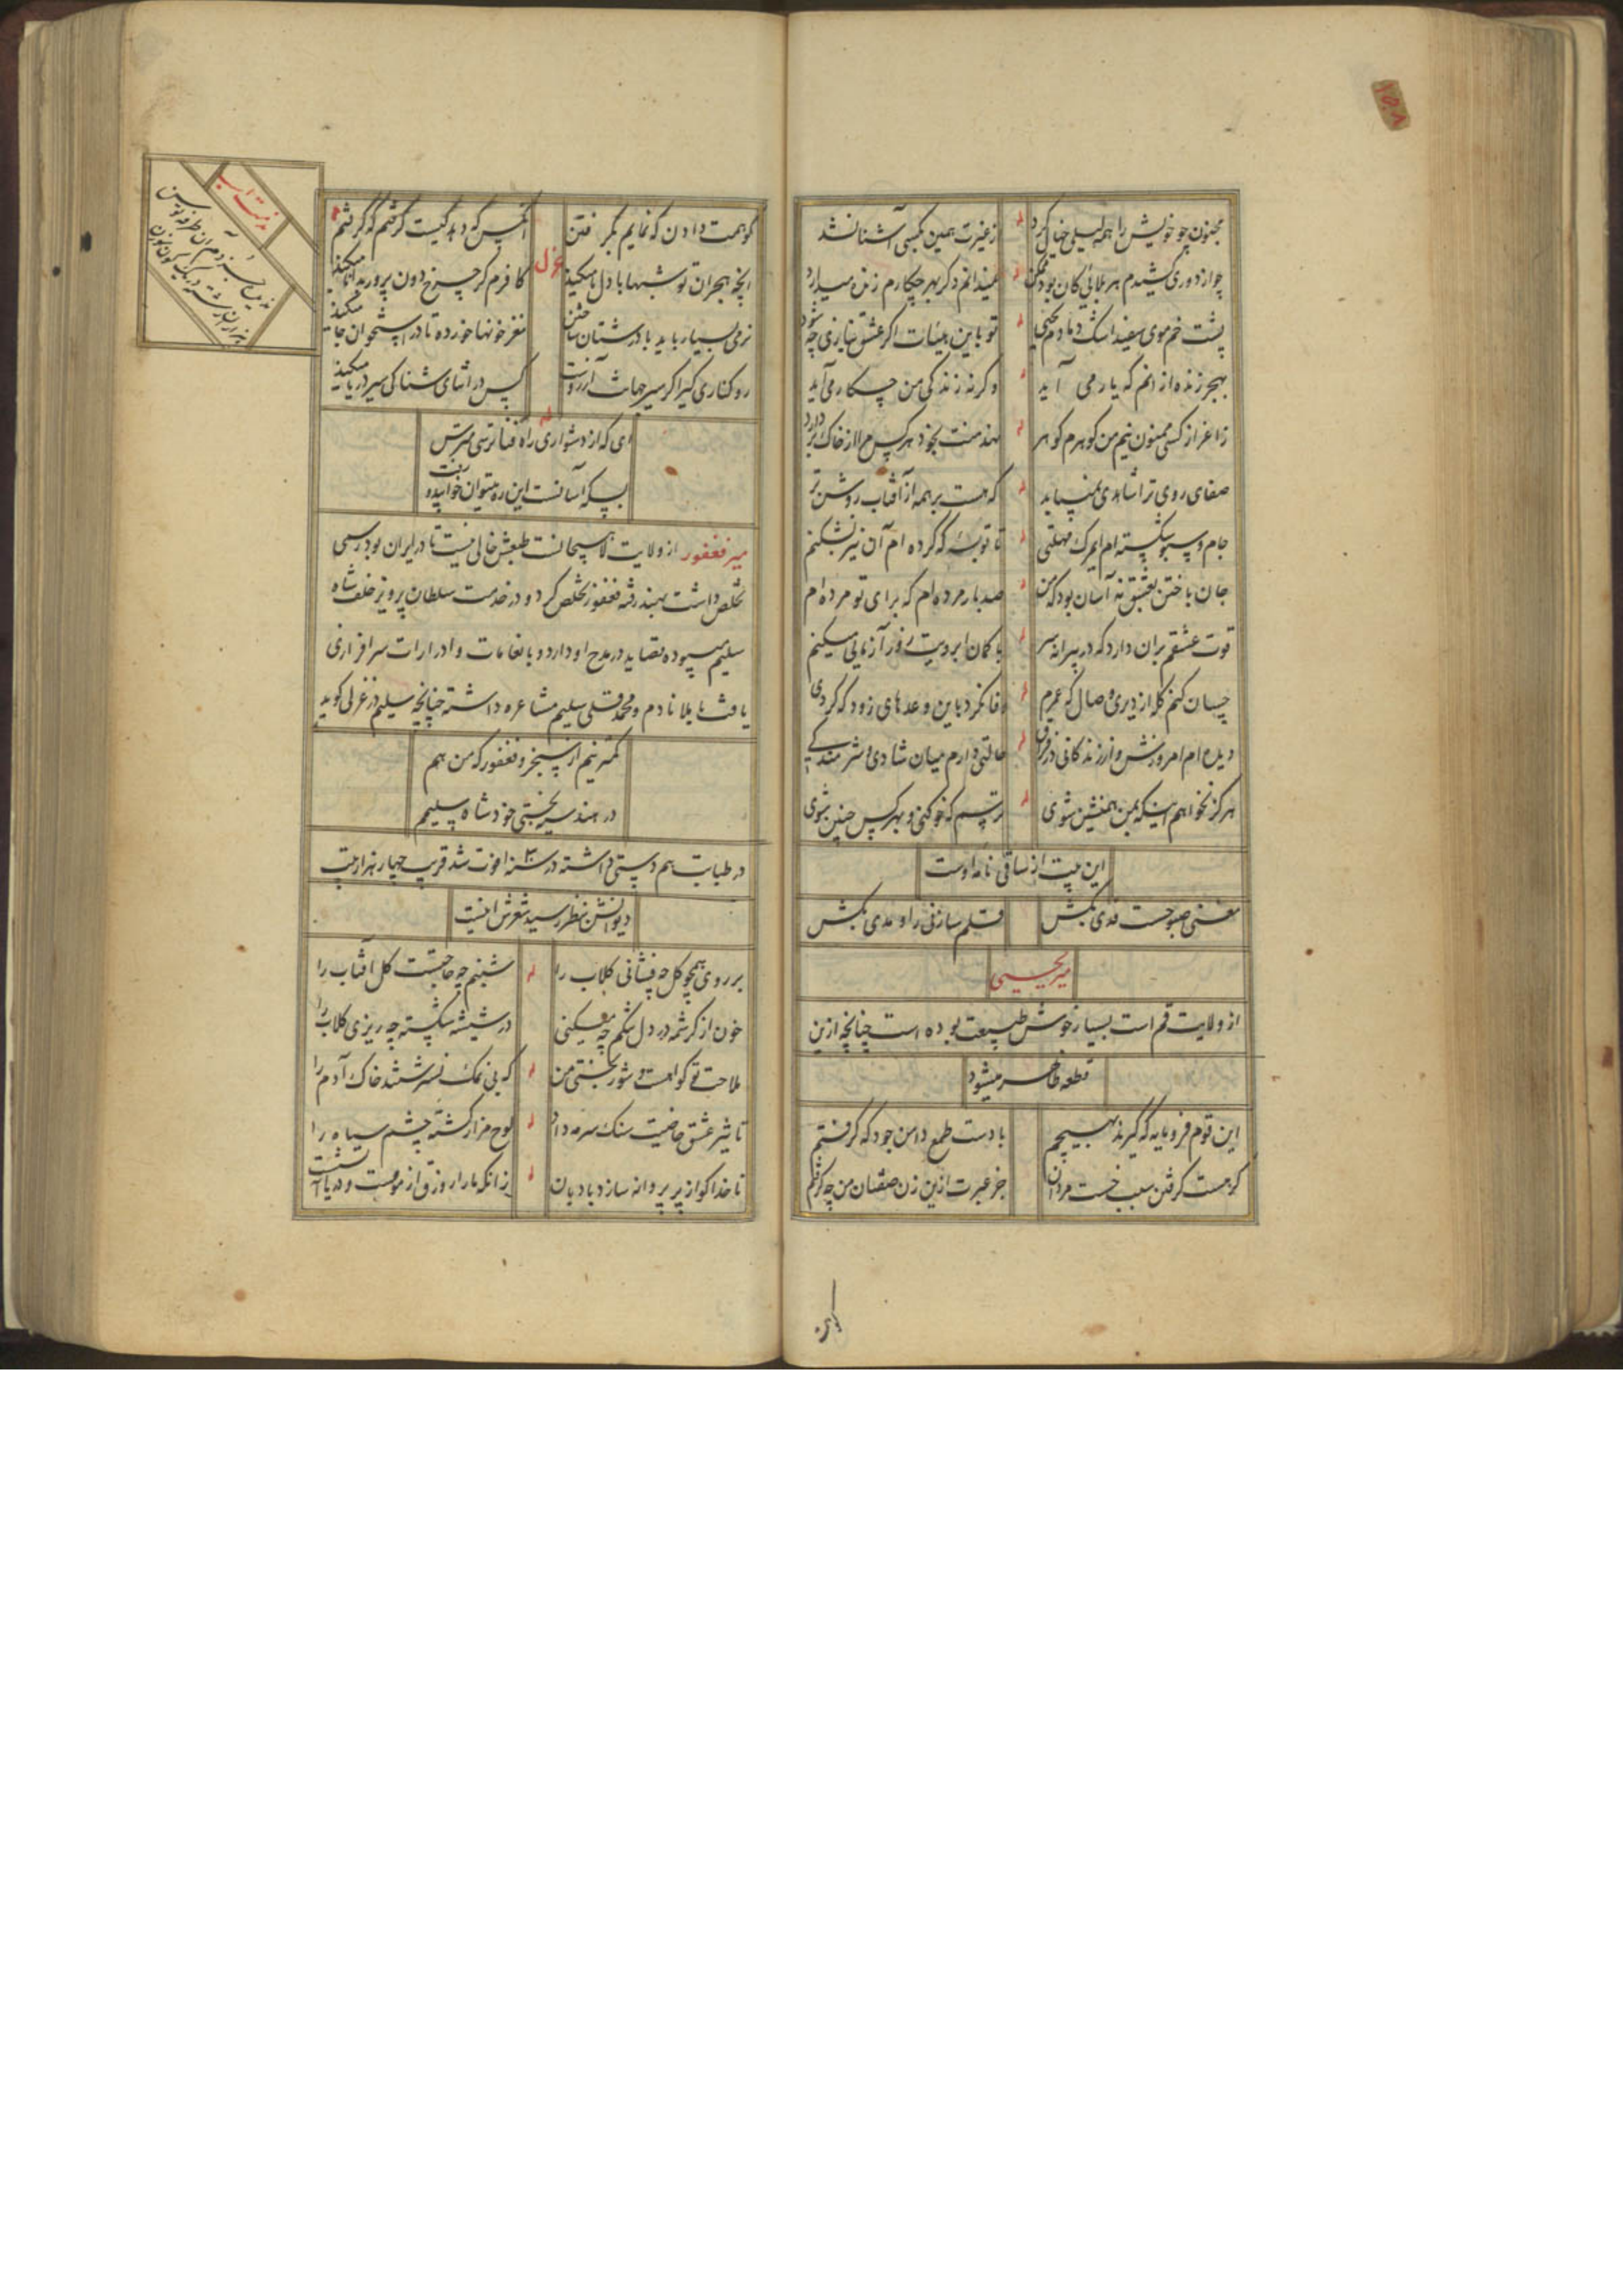 مجنون چو خویش را همه لیلی خیال کرد
ز غیرت همین بکسی آشنا نشد
چو از دوری کشیدم هر بلائی کان بود ممکن
نمیدانم دگر بهر چکارم زنده میدارد
پشت خم موی سفید اشک دمادم یحیی
تو باین اگر عشق نبازی چه شود
بهجر زنده ازانم که یار می آید
وگرنه زندگی من چکار می آید
ز اعزاز کسی ممنون نیم من گوهرم گوهر
نهد منت بخود هر کس مرا از خاک بردارد
صفای روی ترا شاهدی نمیباید
که هست بر همه از آفتاب روشن تر
جام و سبو شکسته ام ای مرگ مهلتی
تا توبه که کرده ام آن نیز بشکنم
جان باختن بعشق نه آسان بود که من
صد بار مرده ام که برای تو مرده ام
قوت عشقم بران دارد که در پیرانه سر
با کمان ابرویت زور آزمایی میکنم
چسان کنم گله از دیری وصال که عمرم
وفا نکرد باین وعدهای زود که کردی
دیده ام امروزش و از زندگانی در فراق
حالتی دارم میان شادی و شرمندگی
هرگز نخواهم اینکه بمن همنشین شوی
ترسم که خو کنی و بهر کس چنین شوی
این بیت از ساقی نامه اوست
مغنی صبوحست قدی بکش
قلم سازنی را و مدی بکش
میر یحیی
از ولایت قم است بسیار خوش طبیعت بوده است چنانچه ازین
قطعه ظاهر میشود
این قوم فرومایه که گیرند بهیچم
با دست طمع دامن جود که گرفتم
گر هست گرفتن سبب خست مردان
جز عبرت ازین زن صفتان من چه گرفتم
کو همت دادن که نمایم بکرفتن
آنکس که دهد کیست گرفتم که گرفتم
غزل
آنچه هجران تو شبها با دل ما میکند
کافرم گر چرخ دون پرور میکند
نرمی بسیار باید با درشتان ساختن
مغز خونها خورده تا در استخوان جا میکند
رو کناری گیر اگر سیر جهانت آرزوست
کس در اثنای شناکی سیر دریا میکند
ای که از دشواری راه فنا ترسی مترس
بسکه آسانست این ره میتوان خوابیده رفت
میر فغفور از ولایت لاهیجانست طبعش خالی نیست تا در ایران بود رسمی
تخلص داشت بهند رفته فغفور تخلص کرد و در خدمت سلطان پرویز خلف شاه
سلیم میبوده قصاید در مدح او دارد و بانعامات و ادرارات سرافرازی
یافته با ملا نادم و محمد قلی سلیم مشاعره داشته چنانچه سلیم در غزلی گوید
کمتر نیم از سنجر و فغفور که من هم
در هند سیه بختی خود شاه سلیم
در طبابت هم دستی داشته در سنه فوت شد قریب چهار هزار بیت
دیوانش بنظر رسید شعرش اینست
بر روی همچو گل چه فشانی گلاب را
شبنم چه حاجتست گل آفتاب را
خون از کرشمه در دل تنگم چه میکنی
در شیشه شکسته چه ریزی گلاب را
ملاحت تو گواهست و شور بختی من
که بی نمک نسرشتند خاک آدم را
تاثیر عشق خاصیت سنگ سرمه داد
لوح مزار کشته چشم سیاه را
ناخدا گو از پر پروانه سازد بادبان
زانکه ما را زورق از مومست و دریا آتشست